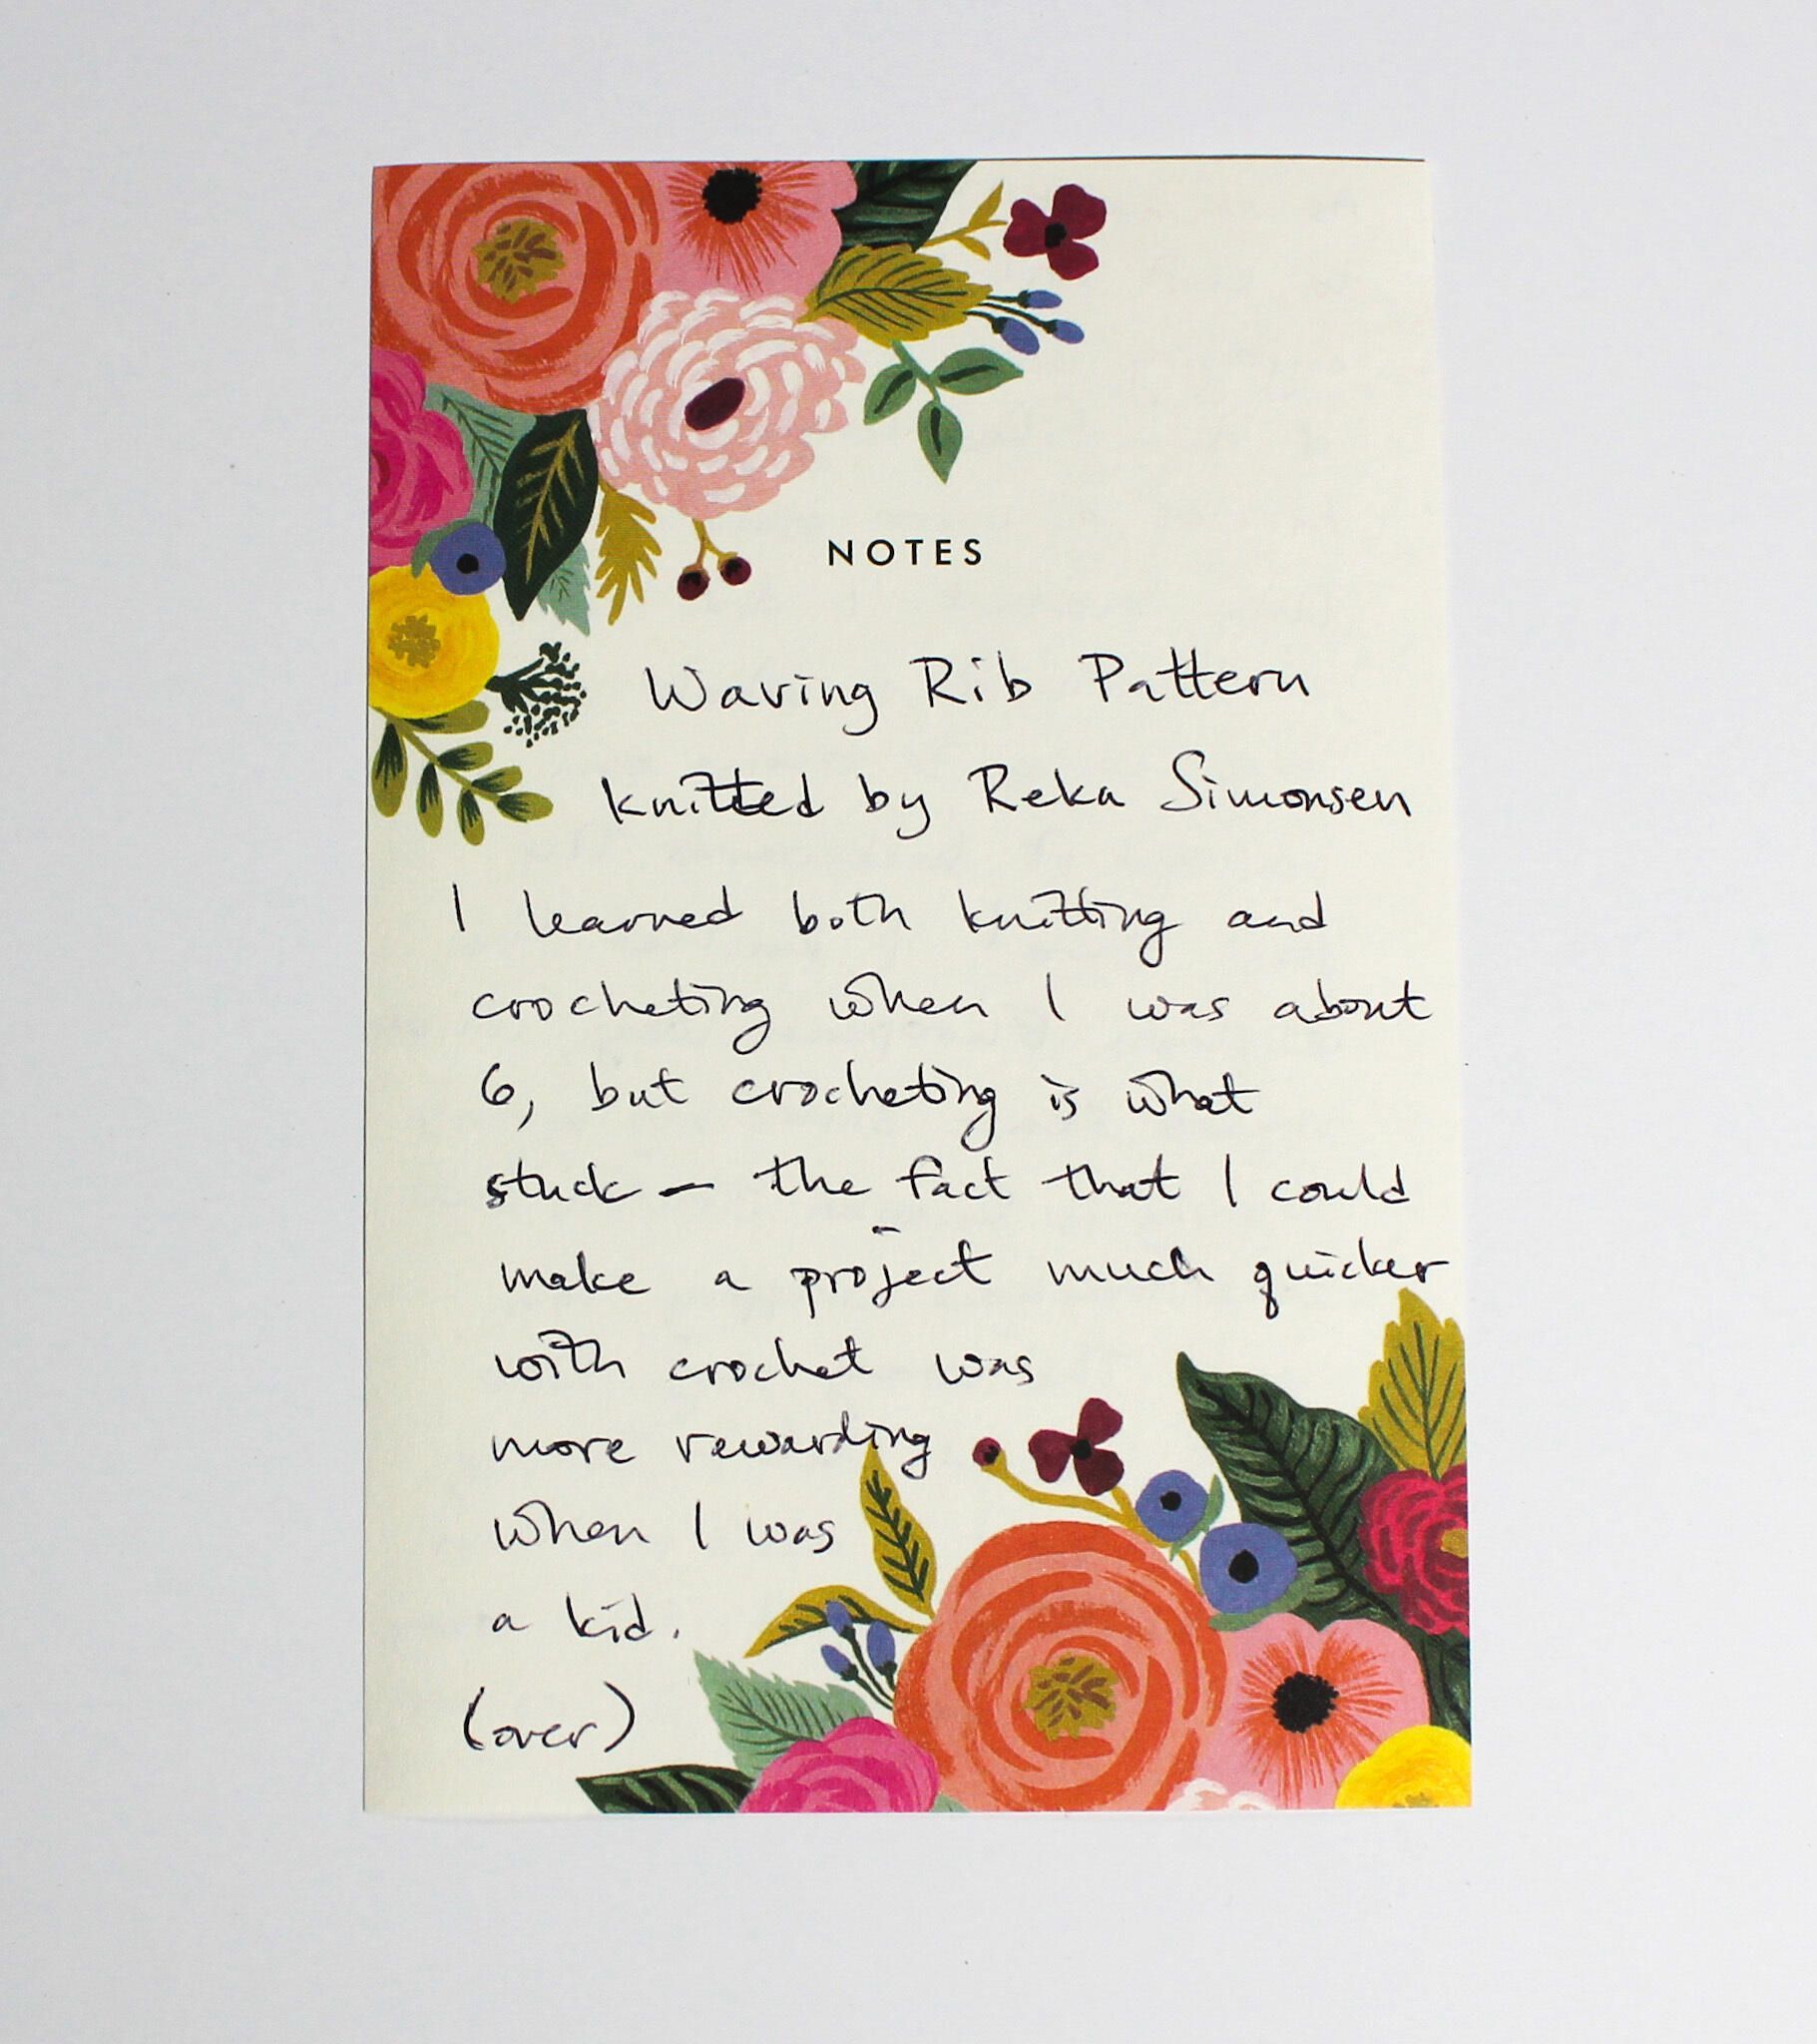 NOTES
Waving Rib Pattern
knitted by Reka Simonsen
I learned both knitting and
crocheting when I was about
6, but crocheting is what
stuck — the fact that I could
make a project much quicker
with crochet was
more rewarding
when I was
a kid.
(over)